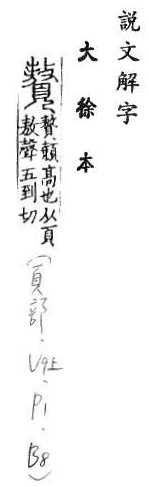 説文解字
大徐本
顤高也从頁
敖聲五到切
(頁部．V9上．P1．B8)